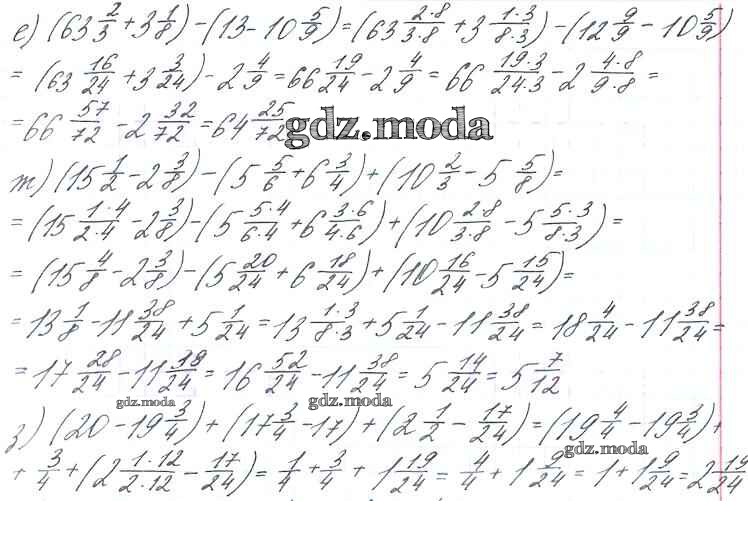 е) (63 2/3 + 3 1/8) - (13 - 10 5/9) = (63 2·8/3·8 + 3 1·3/8·3) - (12 9/9 - 10 5/9)
= (63 16/24 + 3 3/24) - 2 4/9 = 66 19/24 - 2 4/9 = 66 19·3/24·3 - 2 4·8/9·8 =
= 66 57/72 - 2 32/72 = 64 25/72
gdz.moda
т) (15 1/2 - 2 3/8) - (5 5/6 + 6 3/4) + (10 2/3 - 5 5/8) =
= (15 1·4/2·4 - 2 3/8) - (5 5·4/6·4 + 6 3·6/4·6) + (10 2·8/3·8 - 5 5·3/8·3) =
= (15 4/8 - 2 3/8) - (5 20/24 + 6 18/24) + (10 16/24 - 5 15/24) =
= 13 1/8 - 11 38/24 + 5 1/24 = 13 1·3/8·3 + 5 1/24 - 11 38/24 = 18 4/24 - 11 38/24 =
= 17 28/24 - 11 38/24 = 16 52/24 - 11 38/24 = 5 14/24 = 5 7/12
gdz.moda
gdz.moda
з) (20 - 19 3/4) + (17 3/4 - 17) + (2 1/2 - 17/24) = (19 4/4 - 19 3/4) +
gdz.moda
+ 3/4 + (2 1·12/2·12 - 17/24) = 1/4 + 3/4 + 1 19/24 = 4/4 + 1 9/24 = 1 + 1 9/24 = 2 19/24